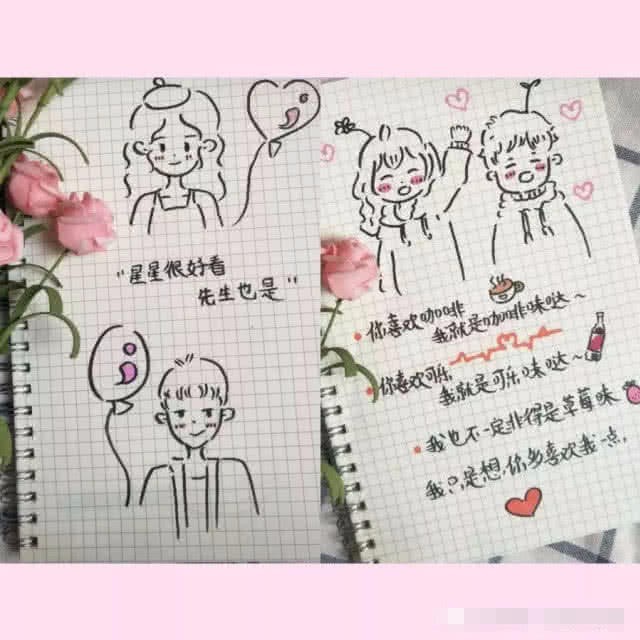 “星星很好看
先生也是”
你喜欢咖啡
我就是咖啡味哒~
你喜欢可乐
我就是可乐味哒~
我也不一定非得是草莓味
我只是想，你多喜欢我一点，